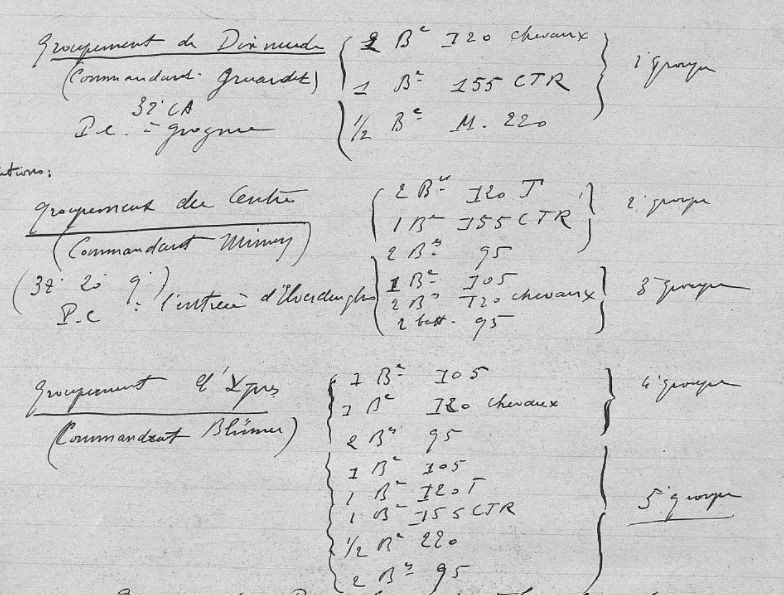 Groupement de Dixmude { 2 Bies 120 chevaux } 1er groupe
(Commandant Gruardet) 1 Bie 155 CTR
32e CA
P.C. = ½ Bie M. 220
Groupement du Centre { 2 Bies 120 T } 2e groupe
(Commandant Mimey) 1 Bie 155 CTR
2 Bies 95
(32e 20e 9e) { 1 Bie 105 } 3e groupe
P.C : l'entrée d'Elverdinghe 2 Bies 120 chevaux
2 batt. 95
Groupement d'Ypres { 1 Bie 105 } 4e groupe
(Commandant Blümer) 1 Bie 120 chevaux
2 Bies 95
1 Bie 105
1 Bie 120 T } 5e groupe
1 Bie 155 CTR
½ Bie 220
2 Bies 95